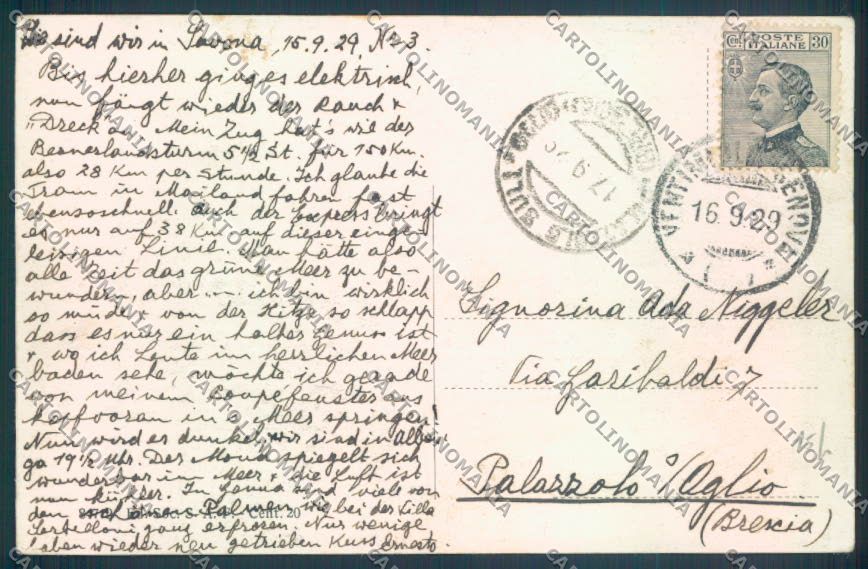 sind wir in Savona, 15.9.29, No 3.
Bis hierher ging es elektrisch,
nun fängt wieder der Rauch &
Dreck an. Mein Zug hat's wie der
Bernerlandsturm 5 1/2 St. für 150 Km.
also 28 Km per Stunde. Ich glaube die
Tram in Mailand fahren fast
ebensoschnell, auch der Express bringt
es nur auf 38 Km auf dieser eingen
leisigen Linie. Man hätte also
alle Zeit das grüne Meer zu be-
wundern, aber ich bin wirklich
so müde & von der Hitze so schlapp
dass es nur ein halber Genuss ist
& wo ich Leute im herrlichen Meer
baden sehe, möchte ich gerade
von meinem Coupéfenster aus
kopfvoran in's Meer springen!
Nun wird es dunkel, wir sind in Alben
ga 19 1/2 Uhr. Der Mond spiegelt sich
wunderbar im Meer & die Luft ist
nun kühler. In Genua sind viele von
den Palmen wie bei der Villa
Serbelloni ganz erfroren. Nur wenige
haben wieder neu getrieben Kuss Ernesto.
Cent. 20
POSTE
ITALIANE
Cent. 30
17.9.29
VENTIMIGLIA GENOVA
16.9.29
Signorina Ada Niggeler
Via Garibaldi 7
Palazzolo s/Oglio
(Brescia)
CARTOLINOMANIA